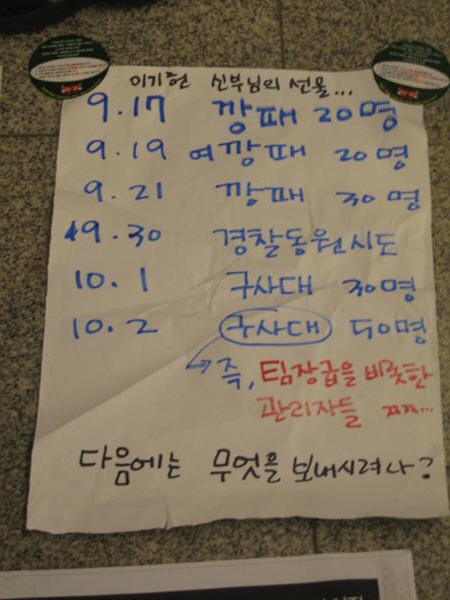 이기헌 신부님의 선물...
9.17 깡패 20명
9.19 여깡패 20명
9.21 깡패 30명
9.30 경찰동원시도
10.1 구사대 30명
10.2 구사대 50명
즉, 팀장급을 비롯한
관리자들 ㅉㅉ...
다음에는 무엇을 보내시려나?